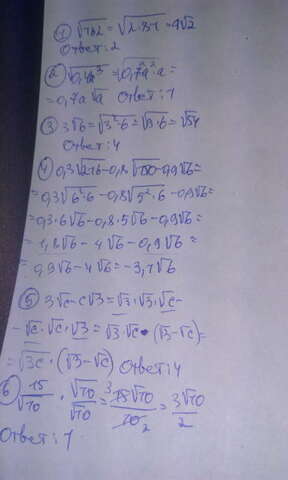 ① √162 = √2·81 = 9√2
Ответ: 2
② √0,49a³ = √0,7²a²·a =
= 0,7a√a Ответ: 1
③ 3√6 = √3²·6 = √9·6 = √54
Ответ: 4
④ 0,3√216 - 0,8√150 - 0,9√6 =
= 0,3√6²·6 - 0,8√5²·6 - 0,9√6 =
= 0,3·6√6 - 0,8·5√6 - 0,9√6 =
= 1,8√6 - 4√6 - 0,9√6 =
= 0,9√6 - 4√6 = -3,1√6
⑤ 3√c - c√3 = √3·√3·√c -
- √c·√c·√3 = √3·√c·(√3-√c) =
= √3c·(√3-√c) Ответ: 4
⑥ 15/√10 · √10/√10 = ³15√10/10₂ = 3√10/2
Ответ: 1